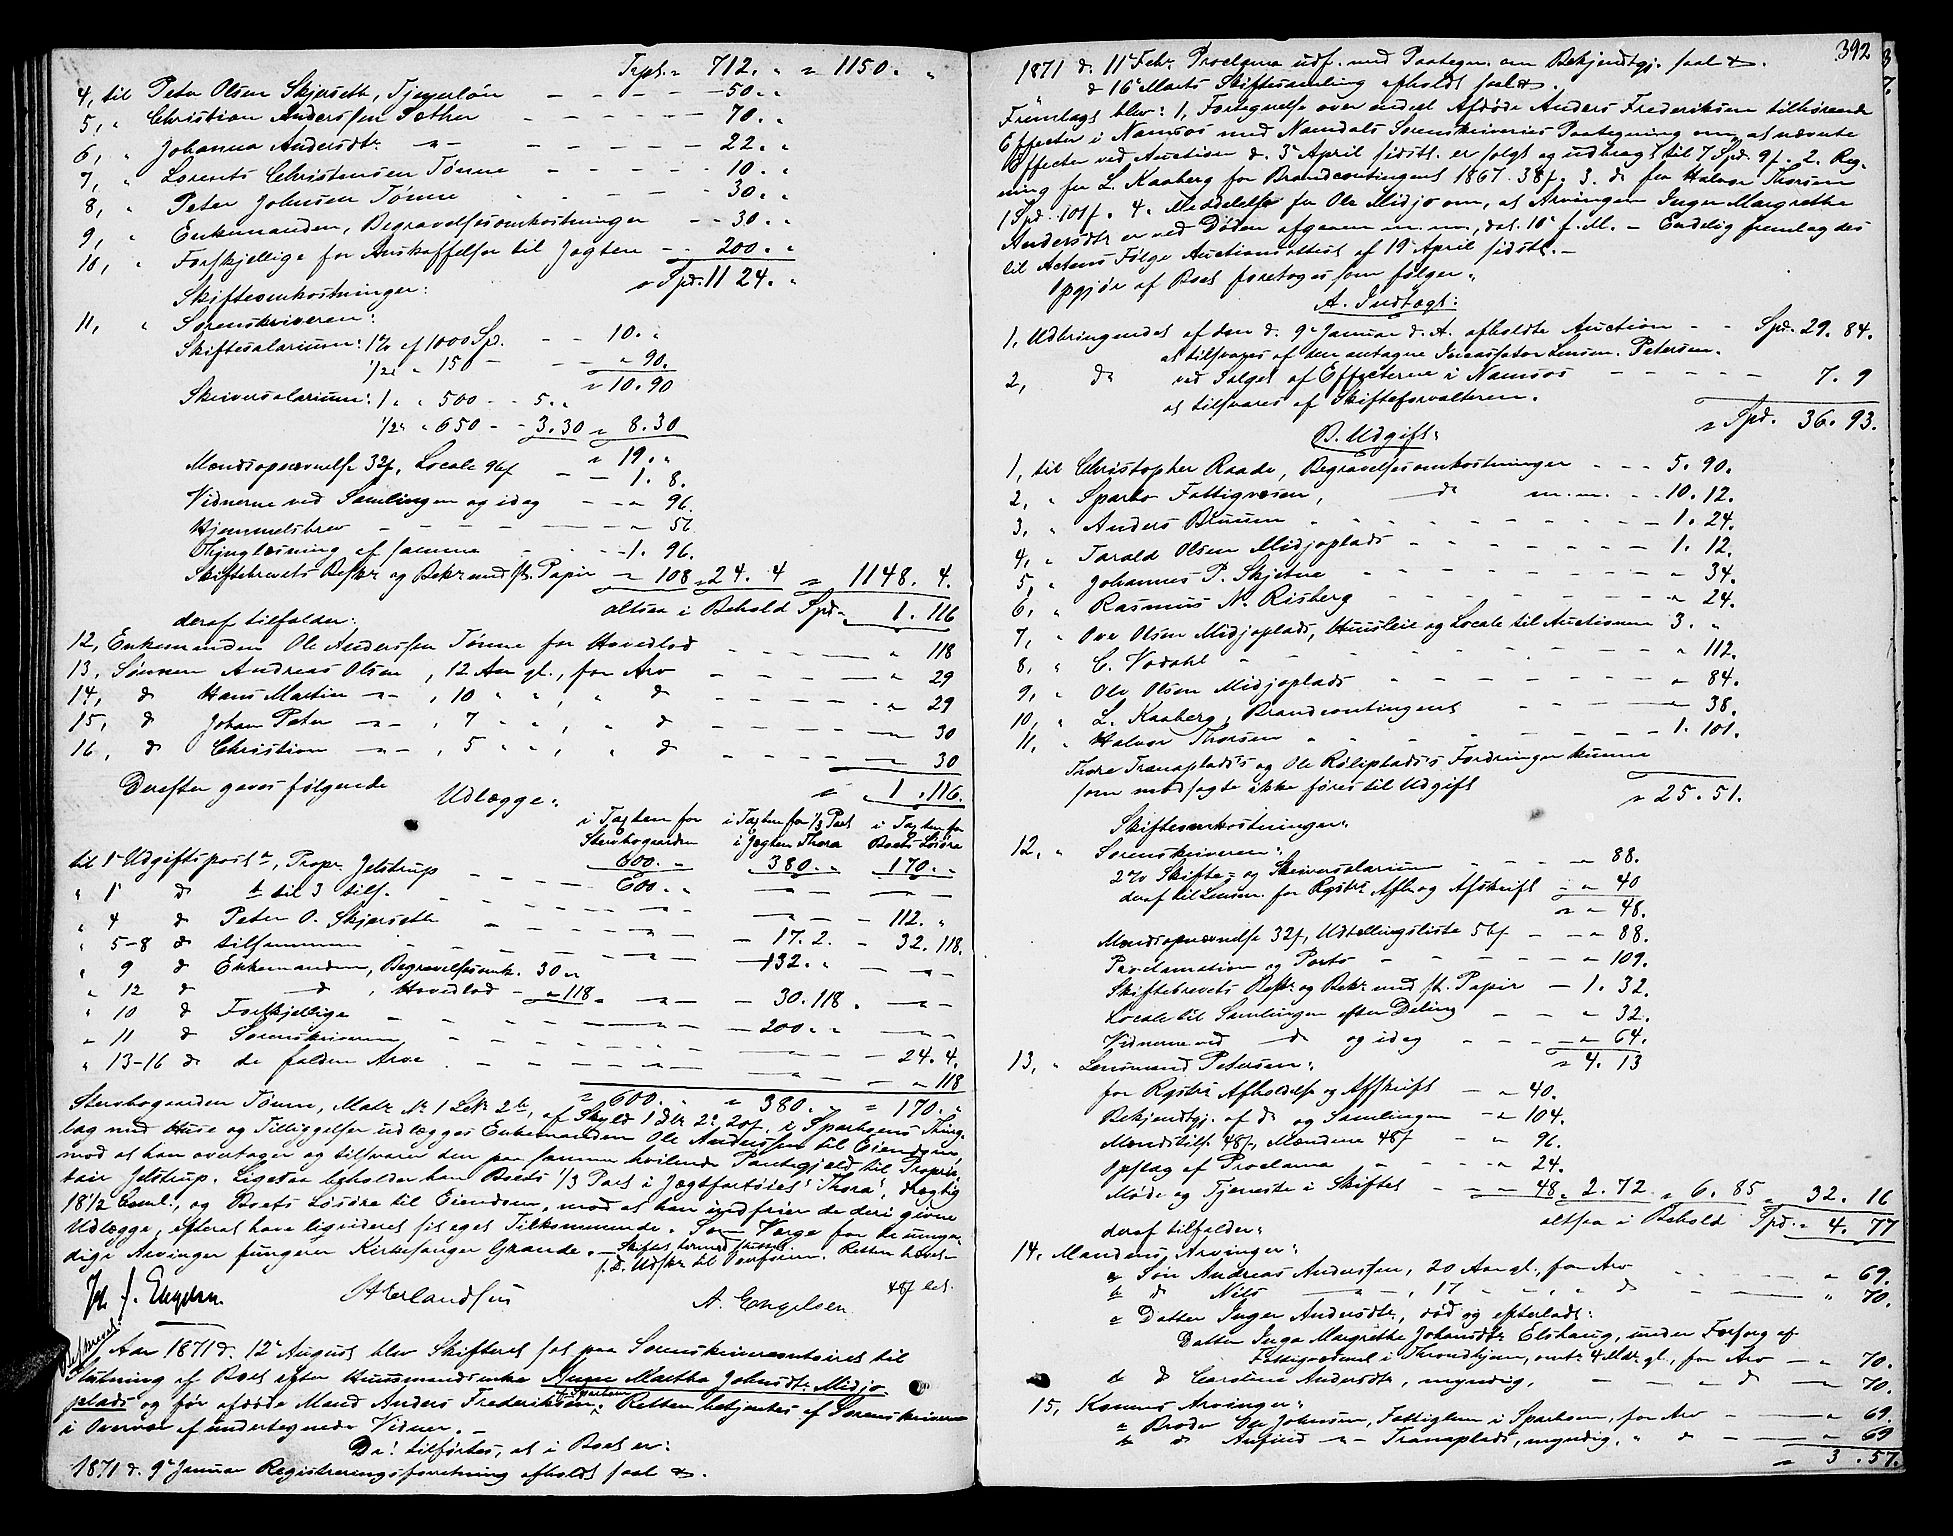 Trpt. „ 712. „ „ 1150. „
4, til Peter Olsen Skjersett, Tjenerløn — 50. „
5, „ Christian Anderssen Sother — 70. „
6, „ Johanna Andersdtr — 22. „
7, „ Lorents Christensen Tønne — 10. „
8, „ Peter Johnsen Tønne — 30. „
9, „ Enkemanden, Begravelsesomkostninger — 30. „
10, „ Forskjellige for Anskaffelser til Jagten — 200. „
Skifteomkostninger: „ Spd. 1124. „
11, „ Sorenskriveren:
Skiftesalarium: 1% af 1000 Sp. — 10. „
1/2% „ 150 — „ 90.
„ 10.90
Skriversalarium: 1 „ „ 500 — 5. „
1/2% „ 650 — 3.30 „ 8.30
„ 19. „
Mandsopnævnelse 32f, Locale 96f — 1. 8.
Vidnerne ved Samlingen og idag — „ 96.
Hjemmelsbrev — „ 57.
Thinglæsning af samme — 1. 96.
Skiftebrevets Beskr. og Bekr. med st. Papir „ 108 „ 24. 4 „ 1148. 4.
altsaa i Behold Spd. „ 1. 116
deraf tilfalder:
12, Enkemanden Ole Anderssen Tønne for Hovedlod — „ 118
13, Sønnen Andreas Olsen, 12 Aar gl., for Arv — „ 29
14, do Hans Martin — „ — , 10 „ „ , „ do — „ 29
15, do Johan Peter — „ — , 7 „ „ , „ do — „ 30
16, do Christian — „ — , 5 „ „ , „ do — „ 30
„ 1. 116.
Derefter gaves følgende
Udlægge:
i Taxten for Stervbogaarden | i Taxten for 1/3 Part i Jagten Thora | i Taxten for Boets Løsøre
600. „ | 380. „ | 170. „
til 1ste Udgiftspost a, Propr. Jelstrup — 600. „ — —
„ 1 do b til 3 tils. — — — 112. „
„ 4 do Peter O. Skjersett — — 17. 2. — 32. 118.
„ 5-8 do tilsammen — — 132. „ —
„ 9 do Enkemanden, Begravelsesomk. 30 „
„ 12 do — do — , Hovedlod — „ 118 — 30. 118. —
„ 10 do Forskjellige — — 200. „ —
„ 11 do Sorenskriveren — — — 24. 4.
„ 13-16 do de faldne Arve — — — „ 118
„ 600. „ „ 380. „ „ 170. „
Stervbogaarden Tønne, Matr. No 1 Lbr. 2b, af Skyld 1 Dlr. 2 Ort 20f. i Sparbuens Thing-
lag med Huse og Tilliggelser udlægges Enkemanden Ole Anderssen til Eiendom,
mod at han overtager og tilsvarer den paa samme hvilende Pantegjæld til Proprie-
tair Jelstrup. Ligesaa beholder han Boets 1/3 Part i Jagtfartøiet "Thora", drægtig
18 1/2 Coml., og Boets Løsøre til Eiendom, mod at han indfrier de deri givne
Udlægge, efterat have liqvideret sit eget Tilkommende. Som Værge for de umyn-
dige Arvinger fungerer Kirkesanger Grande. — Skiftet hermed sluttet
s. D. Udskr. til Overform. Retten hævet —
48f bet.
Joh. J. Engelsen O Herlandsus A. Engelsen
Aar 1871 d. 12te August blev Skifteret sat paa Sorenskrivercontoiret til
Slutning af Boet efter Huusmandsenke Anne Martha Johnsdtr. Midjo-
plads og før afdøde Mand Anders Frederiksen af Sparbuen. Retten betjentes af Sorenskriveren
i Overvær af undertegnede Vidner. —
Da: tilførtes, at i Boet er:
1871 d. 9de Januar Registreringsforretning afholdt saal. &.
392
1871 d. 11te Febr. Proclama udf. med Paategn. om Bekjendtgj. saal. &.
d. 16de Marts Skiftesamling afholdt saal. &.
Fremlagt blev: 1, Fortegnelse over endel Afdøde Anders Frederiksen tilhørende
Effecter i Namsos med Namdals Sorenskriveries Paategning om, at nævnte
Effecter ved Auction d. 3die April sidstl. er solgt og udbragt til 7 Spd. 9f. 2. Reg-
ning fra L. Kaaberg for Brandcontingent 1867 38f. 3. do fra Halvor Thorsen
1 Spd. 101f. 4. Meddelelse fra Ole Midjo om, at Arvingen Inger Margrethe
Andersdtr. er ved Døden afgaaen m.m., dat. 10de f. M. — Endelig fremlagdes
til Actens Følge Auctionsattest af 19de April sidstl. —
Opgjør af Boet foretoges som følger:
A. Indtægt:
1, Udbringendet af den d. 9de Januar d. A. afholdte Auction — Spd. 29. 84.
at tilsvares af den antagne Incassator Lensm. Petersen.
2, do ved Salget af Effecterne i Namsos — 7. 9
at tilsvares af Skifteforvalteren.
„ Spd. 36. 93.
B. Udgift:
1, til Christopher Raade, Begravelsesomkostninger — 5. 90.
2, „ Sparbu Fattigvæsen, — do — m.m. — 10. 12.
3, „ Anders Bruum — 1. 24.
4, „ Tarald Olsen Midjoplads — 1. 12.
5, „ Johannes P. Skjetne — „ 34.
6, „ Rasmus N. Risberg — „ 24.
7, „ Ove Olsen Midjoplads, Huusleie og Locale til Auctionen 3. „
8, „ C. Vodahl — „ 112.
9, „ Ole Olsen Midjoplads — „ 84.
10, „ L. Kaaberg, Brandcontingent — „ 38.
11, „ Halvor Thorsen — 1. 101.
Thore Tranaplads's og Ole Røliplads's Fordringer kunne
som modsagte ikke føres til Udgift „ 25. 51.
Skifteomkostninger:
12, „ Sorenskriveren:
2% Skifte- og Skriversalarium — „ 88.
deraf til Lensm. for Rgstrs. Afh. og Afskrift — „ 40
„ „ 48.
Mandsopnævnelse 32f, Udtællingsliste 56f — „ 88.
Proclamation og Porto — „ 109.
Skiftebrevets Beskr. og Bekr. med st. Papir — 1. 32.
Locale til Samlingen efter Deling — „ 32.
Vidnerne ved — do — og idag — „ 64.
„ 4. 13
13, „ Lensmand Petersen:
for Rgstrs. Afholdelse og Afskrift — „ 40.
Bekjendtgj. af do og Samlingen — „ 104.
Mandstils. 48f, Mændene 48f — „ 96.
Opslag af Proclama — „ 24.
Møde og Tjeneste i Skiftet — „ 48. 2. 72. „ 6. 85 „ 32. 16
altsaa i Behold Spd. „ 4. 77
deraf tilfalder:
14. Mandens Arvinger:
a Søn Andreas Anderssen, 20 Aar gl., for Arv — „ 69.
b do Nils — „ — , 17 „ „ , „ do — „ 70.
c Datter Inger Andersdtr., død og efterladt:
Datter Inga Margrethe Johansdtr. Elshaug, under Forsorg af
Fattigvæsenet i Throndhjem, omtr. 4 Mdr. gl., for Arv — „ 70.
d do Caroline Andersdtr., myndig, — „ do — „ 70.
15, Konens Arvinger:
a Broder Ole Johnsen, Fattiglem i Sparbuen, for Arv — „ 69.
b do Anfind — „ — Tranaplads, myndig, „ do — „ 69
„ 3. 57.